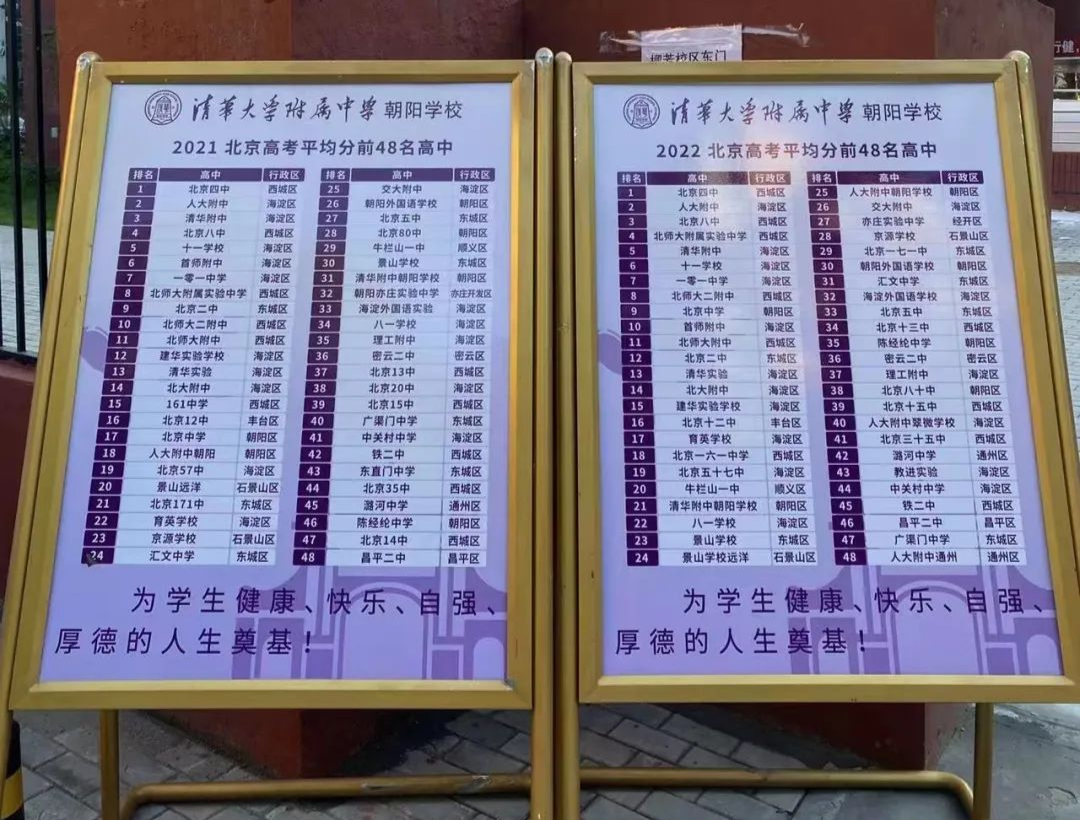 柳芳校区东门
行健,
清华大学附属中学 朝阳学校
2021 北京高考平均分前48名高中
排名 高中 行政区
1 北京四中 西城区
2 人大附中 海淀区
3 清华附中 海淀区
4 北京八中 西城区
5 十一学校 海淀区
6 首师附中 海淀区
7 一零一中学 海淀区
8 北师大附属实验中学 西城区
9 北京二中 东城区
10 北师大二附中 西城区
11 北师大附中 西城区
12 建华实验学校 海淀区
13 清华实验 海淀区
14 北大附中 海淀区
15 161中学 西城区
16 北京12中 丰台区
17 北京中学 朝阳区
18 人大附中朝阳 朝阳区
19 北京57中 海淀区
20 景山远洋 石景山区
21 北京171中 东城区
22 育英学校 海淀区
23 京源学校 石景山区
24 汇文中学 东城区
排名 高中 行政区
25 交大附中 海淀区
26 朝阳外国语学校 朝阳区
27 北京五中 东城区
28 北京80中 朝阳区
29 牛栏山一中 顺义区
30 景山学校 东城区
31 清华附中朝阳学校 朝阳区
32 朝阳亦庄实验中学 亦庄开发区
33 海淀外国语实验 海淀区
34 八一学校 海淀区
35 理工附中 海淀区
36 密云二中 密云区
37 北京13中 西城区
38 北京20中 海淀区
39 北京15中 西城区
40 广渠门中学 东城区
41 中关村中学 海淀区
42 铁二中 西城区
43 东直门中学 东城区
44 北京35中 西城区
45 潞河中学 通州区
46 陈经纶中学 朝阳区
47 北京14中 西城区
48 昌平二中 昌平区
为学生健康、快乐、自强、
厚德的人生奠基!
清华大学附属中学 朝阳学校
2022 北京高考平均分前48名高中
排名 高中 行政区
1 北京四中 西城区
2 人大附中 海淀区
3 北京八中 西城区
4 北师大附属实验中学 西城区
5 清华附中 海淀区
6 十一学校 海淀区
7 一零一中学 海淀区
8 北师大二附中 西城区
9 北京中学 朝阳区
10 首师附中 海淀区
11 北师大附中 西城区
12 北京二中 东城区
13 清华实验 海淀区
14 北大附中 海淀区
15 建华实验学校 海淀区
16 北京十二中 丰台区
17 育英学校 海淀区
18 北京一六一中 西城区
19 北京五十七中 海淀区
20 牛栏山一中 顺义区
21 清华附中朝阳学校 朝阳区
22 八一学校 海淀区
23 景山学校 东城区
24 景山学校远洋 石景山区
排名 高中 行政区
25 人大附中朝阳学校 朝阳区
26 交大附中 海淀区
27 亦庄实验中学 经开区
28 京源学校 石景山区
29 北京一七一中 东城区
30 朝阳外国语学校 朝阳区
31 汇文中学 东城区
32 海淀外国语学校 海淀区
33 北京五中 东城区
34 北京十三中 西城区
35 陈经纶中学 朝阳区
36 密云二中 密云区
37 理工附中 海淀区
38 北京八十中 朝阳区
39 北京十五中 西城区
40 人大附中翠微学校 海淀区
41 北京三十五中 西城区
42 潞河中学 通州区
43 教进实验 海淀区
44 中关村中学 海淀区
45 铁二中 西城区
46 昌平二中 昌平区
47 广渠门中学 东城区
48 人大附中通州 通州区
为学生健康、快乐、自强、
厚德的人生奠基!